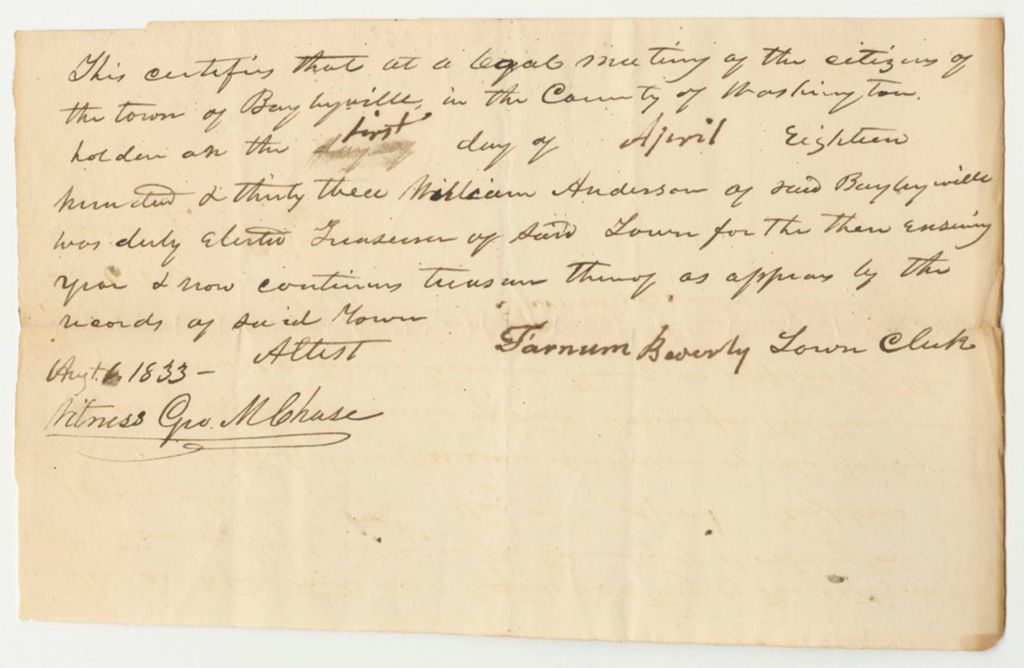 This certifies that at a legal meeting of the citizens of
the town of Baileyville, in the County of Washington,
holden on the first day of April Eighteen
hundred & thirty three William Anderson of said Baileyville
was duly Elected Treasurer of said Town for the then ensuing
year & now continues treasurer thereof as appears by the
records of said Town
Attest Farnum Beverly Town Clerk
Augt. 6, 1833 –
Witness Geo. M Chase